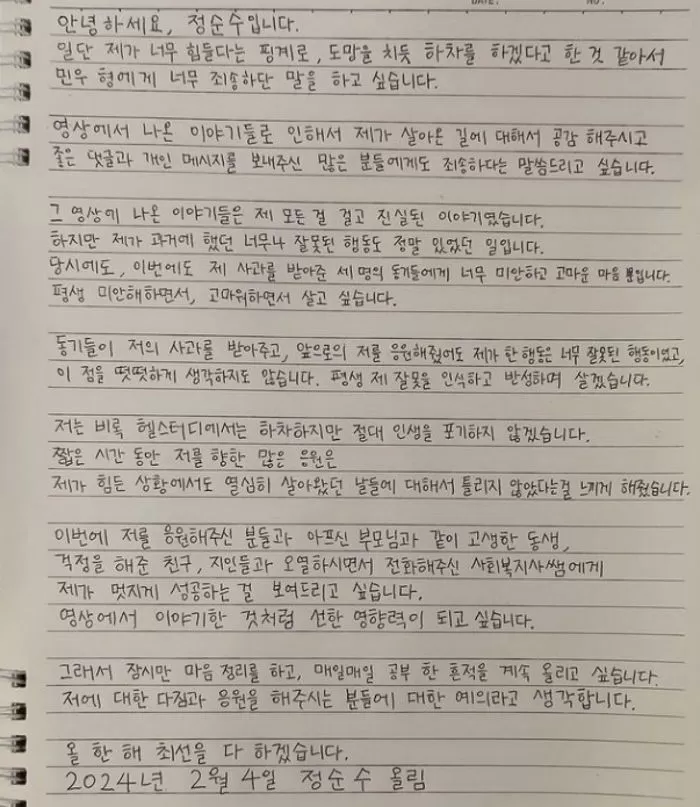 DATE. NO.
안녕하세요, 정순수입니다.
일단 제가 너무 힘들다는 핑계로, 도망을 치듯 하차를 하겠다고 한 것 같아서
민우 형에게 너무 죄송하단 말을 하고 싶습니다.
영상에서 나온 이야기들로 인해서 제가 살아온 길에 대해서 공감 해주시고
좋은 댓글과 개인 메시지를 보내주신 많은 분들에게도 죄송하다는 말씀드리고 싶습니다.
그 영상에 나온 이야기들은 제 모든걸 걸고 진실된 이야기였습니다.
하지만 제가 과거에 했던 너무나 잘못된 행동도 정말 있었던 일입니다.
당시에도, 이번에도 제 사과를 받아준 세 명의 동기들에게 너무 미안하고 고마운 마음 뿐입니다.
평생 미안해하면서, 고마워하면서 살고 싶습니다.
동기들이 저의 사과를 받아주고, 앞으로의 저를 응원해줬어도 제가 한 행동은 너무 잘못된 행동이었고,
이 점을 떳떳하게 생각하지도 않습니다. 평생 제 잘못을 인식하고 반성하며 살겠습니다.
저는 비록 헬스터디에서는 하차하지만 절대 인생을 포기하지 않겠습니다.
짧은 시간 동안 저를 향한 많은 응원은
제가 힘든 상황에서도 열심히 살아왔던 날들에 대해서 틀리지 않았다는걸 느끼게 해줬습니다.
이번에 저를 응원해주신 분들과 아프신 부모님과 같이 고생한 동생,
걱정을 해준 친구, 지인들과 오열하시면서 전화해주신 사회복지사쌤에게
제가 멋지게 성공하는 걸 보여드리고 싶습니다.
영상에서 이야기한 것처럼 선한 영향력이 되고 싶습니다.
그래서 잠시만 마음 정리를 하고, 매일매일 공부 한 흔적을 계속 올리고 싶습니다.
저에 대한 다짐과 응원을 해주시는 분들에 대한 예의라고 생각합니다.
올 한 해 최선을 다 하겠습니다.
2024년 2월 4일 정순수 올림